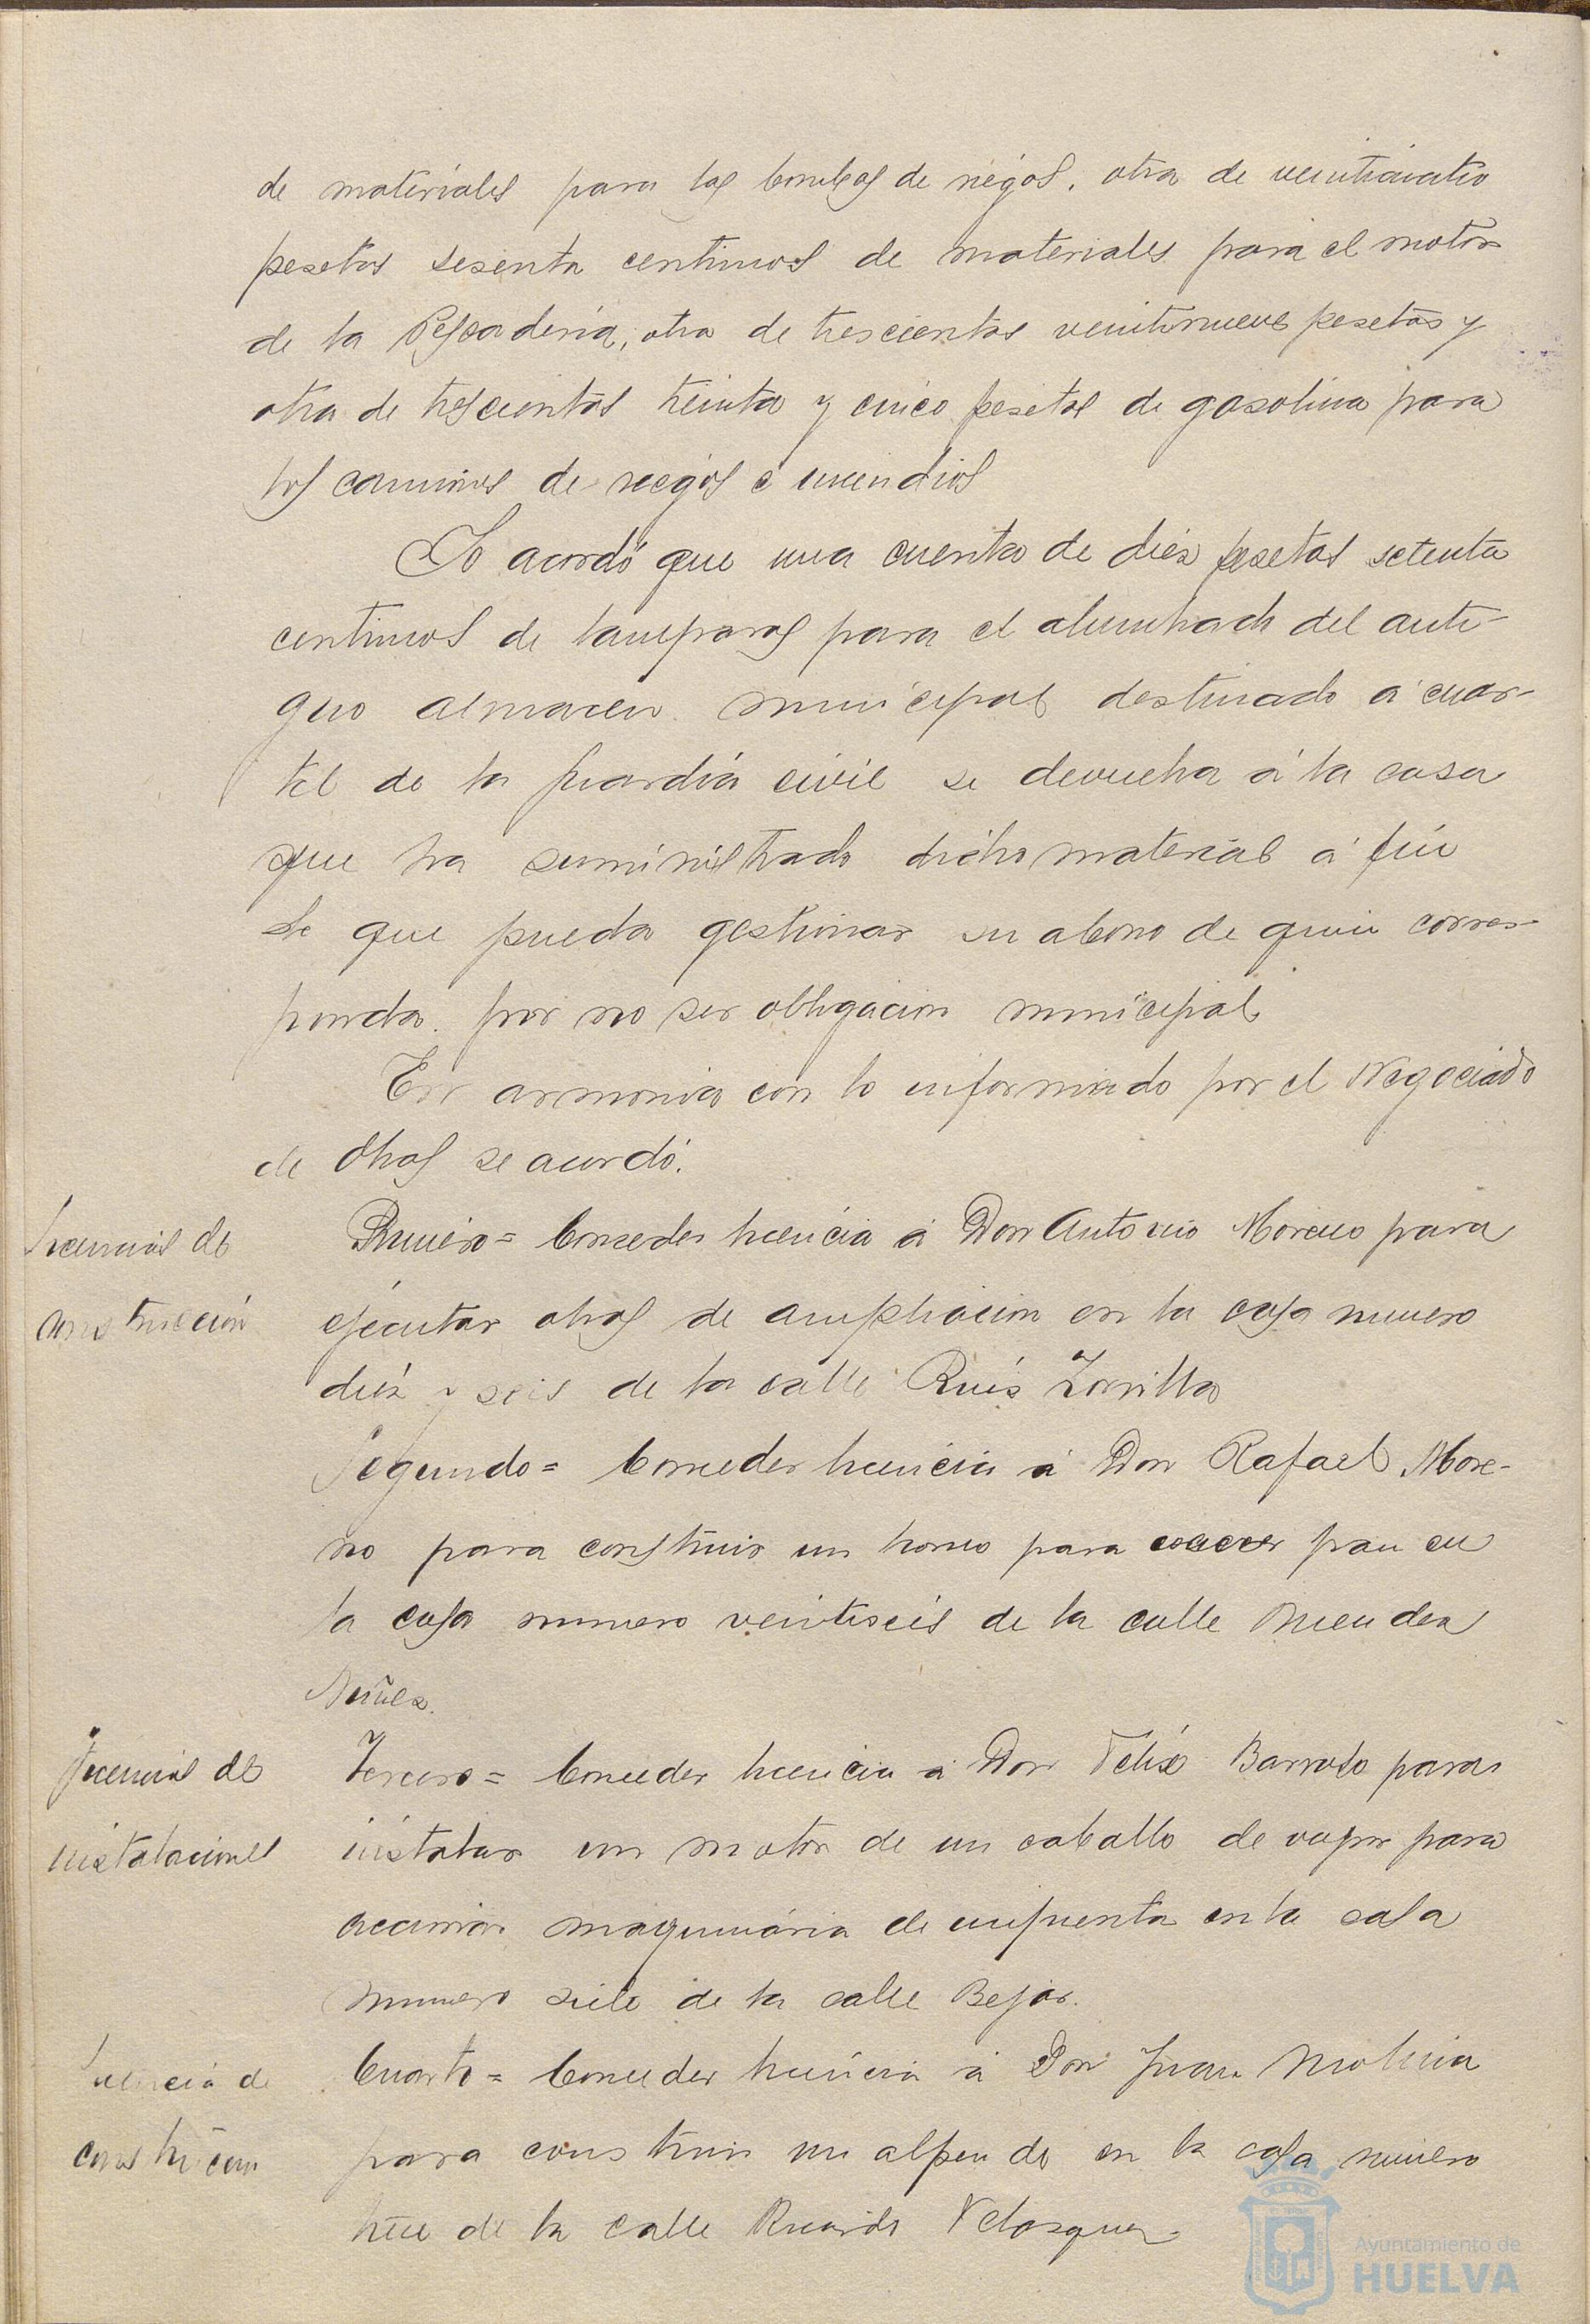 de materiales para las bombas de riegos, otra de veinticuatro
pesetas sesenta centimos de materiales para el motor
de la Pescaderia, otra de trescientas veintinueve pesetas y
otra de trescientas treinta y cinco pesetas de gasolina para
los camiones de riegos e incendios
Se acordó que una cuenta de diez pesetas setenta
centimos de lamparas para el alumbrado del anti-
guo almacen municipal destinado á cuar-
tel de la guardia civil se devuelva á la casa
que ha suministrado dicho material á fin
de que pueda gestionar su abono de quien corres-
ponda por no ser obligacion municipal
En armonia con lo informado por el Negociado
de Obras se acordó.
Licencias de
construcción
Primero = Conceder licencia á Don Antonio Moreno para
ejecutar obras de ampliacion en la casa numero
diez y seis de la calle Ruiz Zorrilla
Segundo = Conceder licencia á Don Rafael More-
no para construir un horno para cocer pan en
la casa numero veintiseis de la calle Mendez
Nuñez.
Licencias de
instalaciones
Tercero = Conceder licencia á Don Felix Barroso para
instalar un motor de un caballo de vapor para
accionar maquinaria de imprenta en la casa
numero siete de la calle Bejar.
Licencia de
construccion
Cuarto = Conceder licencia á Don Juan Molina
para construir un alpende en la casa numero
trece de la calle Ricardo Velazquez.
Ayuntamiento de
HUELVA